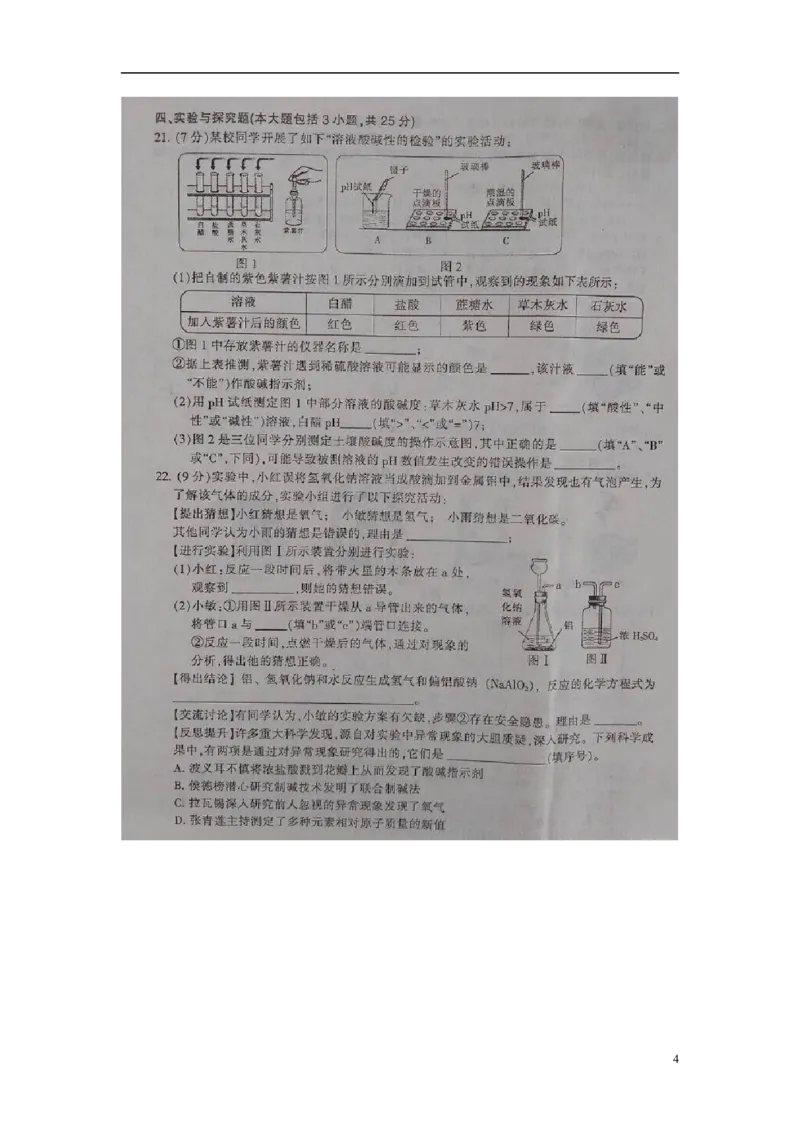 四、实验与探究题(本大题包括3小题,共25分)
21. (7分)某校同学开展了如下“溶液酸碱性的检验”的实验活动:
白醋 盐酸 蔗糖水 草木灰水 石灰水 紫薯汁
图1
镊子 玻璃棒 玻璃棒
pH试纸 干燥的点滴板 潮湿的点滴板
pH试纸 pH试纸
A B C
图2
(1)把自制的紫色紫薯汁按图1所示分别滴加到试管中,观察到的现象如下表所示:
溶液 白醋 盐酸 蔗糖水 草木灰水 石灰水
加入紫薯汁后的颜色 红色 红色 紫色 绿色 绿色
①图1中存放紫薯汁的仪器名称是______;
②据上表推测,紫薯汁遇到稀硫酸溶液可能显示的颜色是______,该汁液_____(填“能”或
“不能”)作酸碱指示剂;
(2)用pH试纸测定图1中部分溶液的酸碱度:草木灰水pH>7,属于_____(填“酸性”、“中
性”或“碱性”)溶液,白醋pH_____(填“>”、“<”或“=”)7;
(3)图2是三位同学分别测定土壤酸碱度的操作示意图,其中正确的是______(填“A”、“B”
或“C”,下同),可能导致被测溶液的pH数值发生改变的错误操作是_________。
22. (9分)实验中,小红误将氢氧化钠溶液当成酸滴加到金属铝中,结果发现也有气泡产生,为
了解该气体的成分,实验小组进行了以下探究活动:
【提出猜想】小红猜想是氧气; 小敏猜想是氢气; 小雨猜想是二氧化碳。
其他同学认为小雨的猜想是错误的,理由是______________;
【进行实验】利用图Ⅰ所示装置分别进行实验:
(1)小红:反应一段时间后,将带火星的木条放在a处,
观察到_________,则她的猜想错误。
(2)小敏:①用图Ⅱ所示装置干燥从a导管出来的气体,
将管口a与_____(填“b”或“c”)端管口连接。
②反应一段时间,点燃干燥后的气体,通过对现象的
分析,得出他的猜想正确。
氢氧化钠溶液 a 铝
图Ⅰ
b c 浓H₂SO₄
图Ⅱ
【得出结论】铝、氢氧化钠和水反应生成氢气和偏铝酸钠(NaAlO₂),反应的化学方程式为
______________________________。
【交流讨论】有同学认为,小敏的实验方案有欠缺,步骤②存在安全隐患。理由是______。
【反思提升】许多重大科学发现,源自对实验中异常现象的大胆质疑,深入研究。下列科学成
果中,有两项是通过对异常现象研究得出的,它们是______________(填序号)。
A. 波义耳不慎将浓盐酸溅到花瓣上从而发现了酸碱指示剂
B. 侯德榜潜心研究制碱技术发明了联合制碱法
C. 拉瓦锡深入研究前人忽视的异常现象发现了氧气
D. 张青莲主持测定了多种元素相对原子质量的新值
4